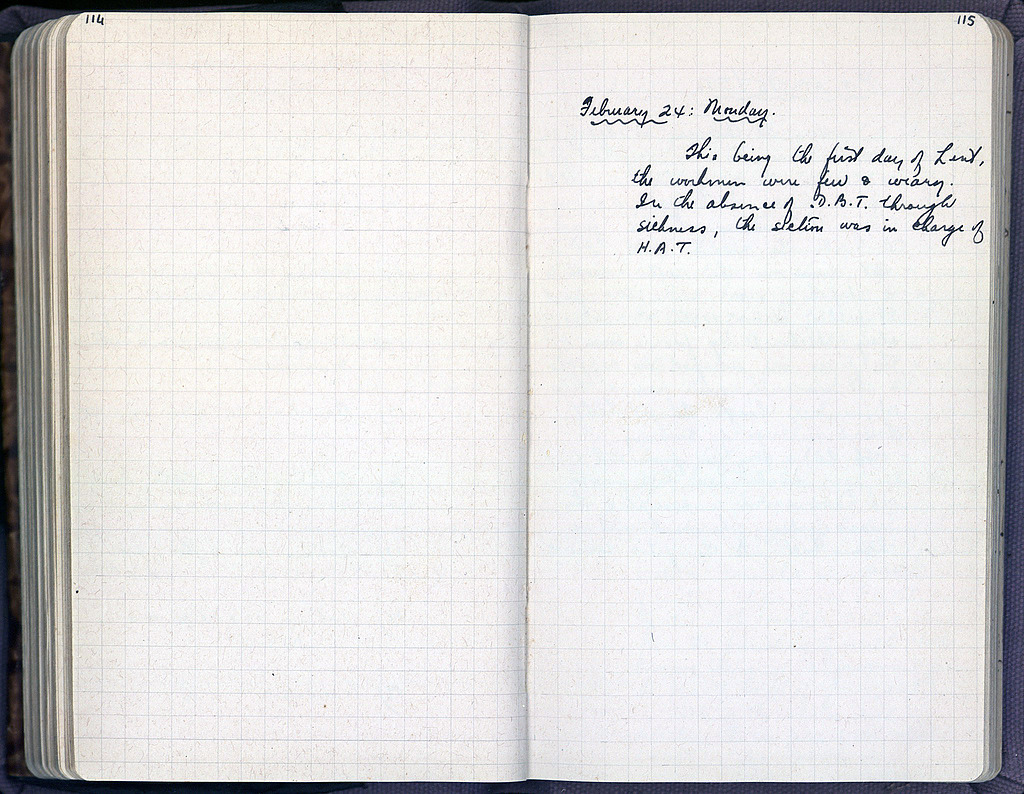 114
115
February 24: Monday.
This being the first day of Lent,
the workmen were few & weary.
In the absence of D.B.T. through
sickness, the section was in charge of
H.A.T.